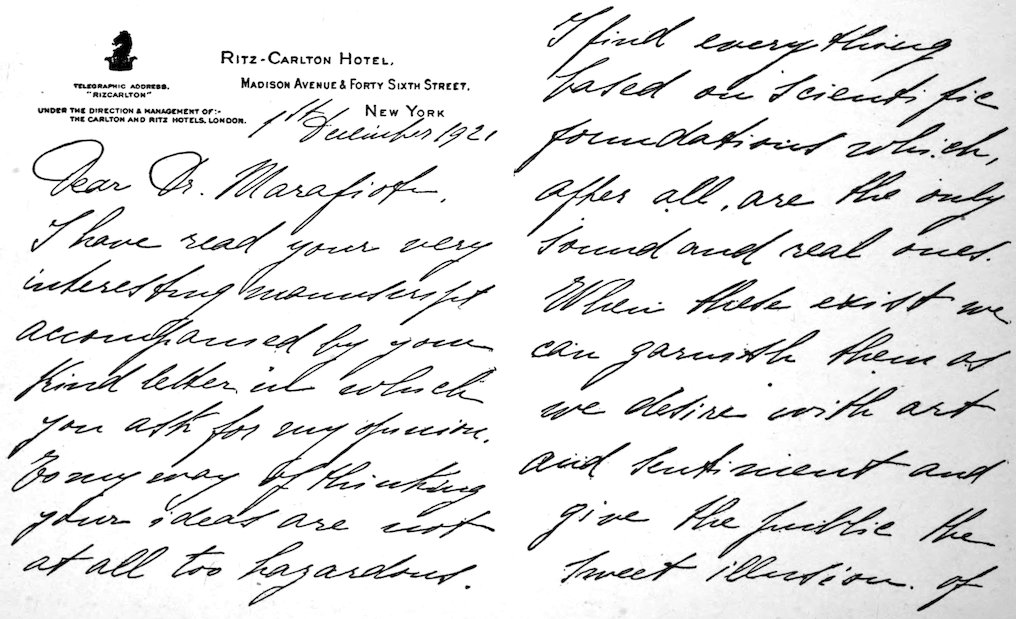 RITZ-CARLTON HOTEL,
MADISON AVENUE & FORTY SIXTH STREET.
NEW YORK
TELEGRAPHIC ADDRESS.
"RIZCARLTON"
UNDER THE DIRECTION & MANAGEMENT OF:-
THE CARLTON AND RITZ HOTELS. LONDON.
1st December 1921
Dear Dr. Marafioti,
I have read your very
interesting manuscript
accompanied by your
kind letter in which
you ask for my opinion.
To my way of thinking
your ideas are not
at all too hazardous.
I find everything
based on scientific
foundations which,
after all, are the only
sound and real ones.
When these exist we
can garnish them as
we desire with art
and sentiment and
give the public the
sweet illusion of